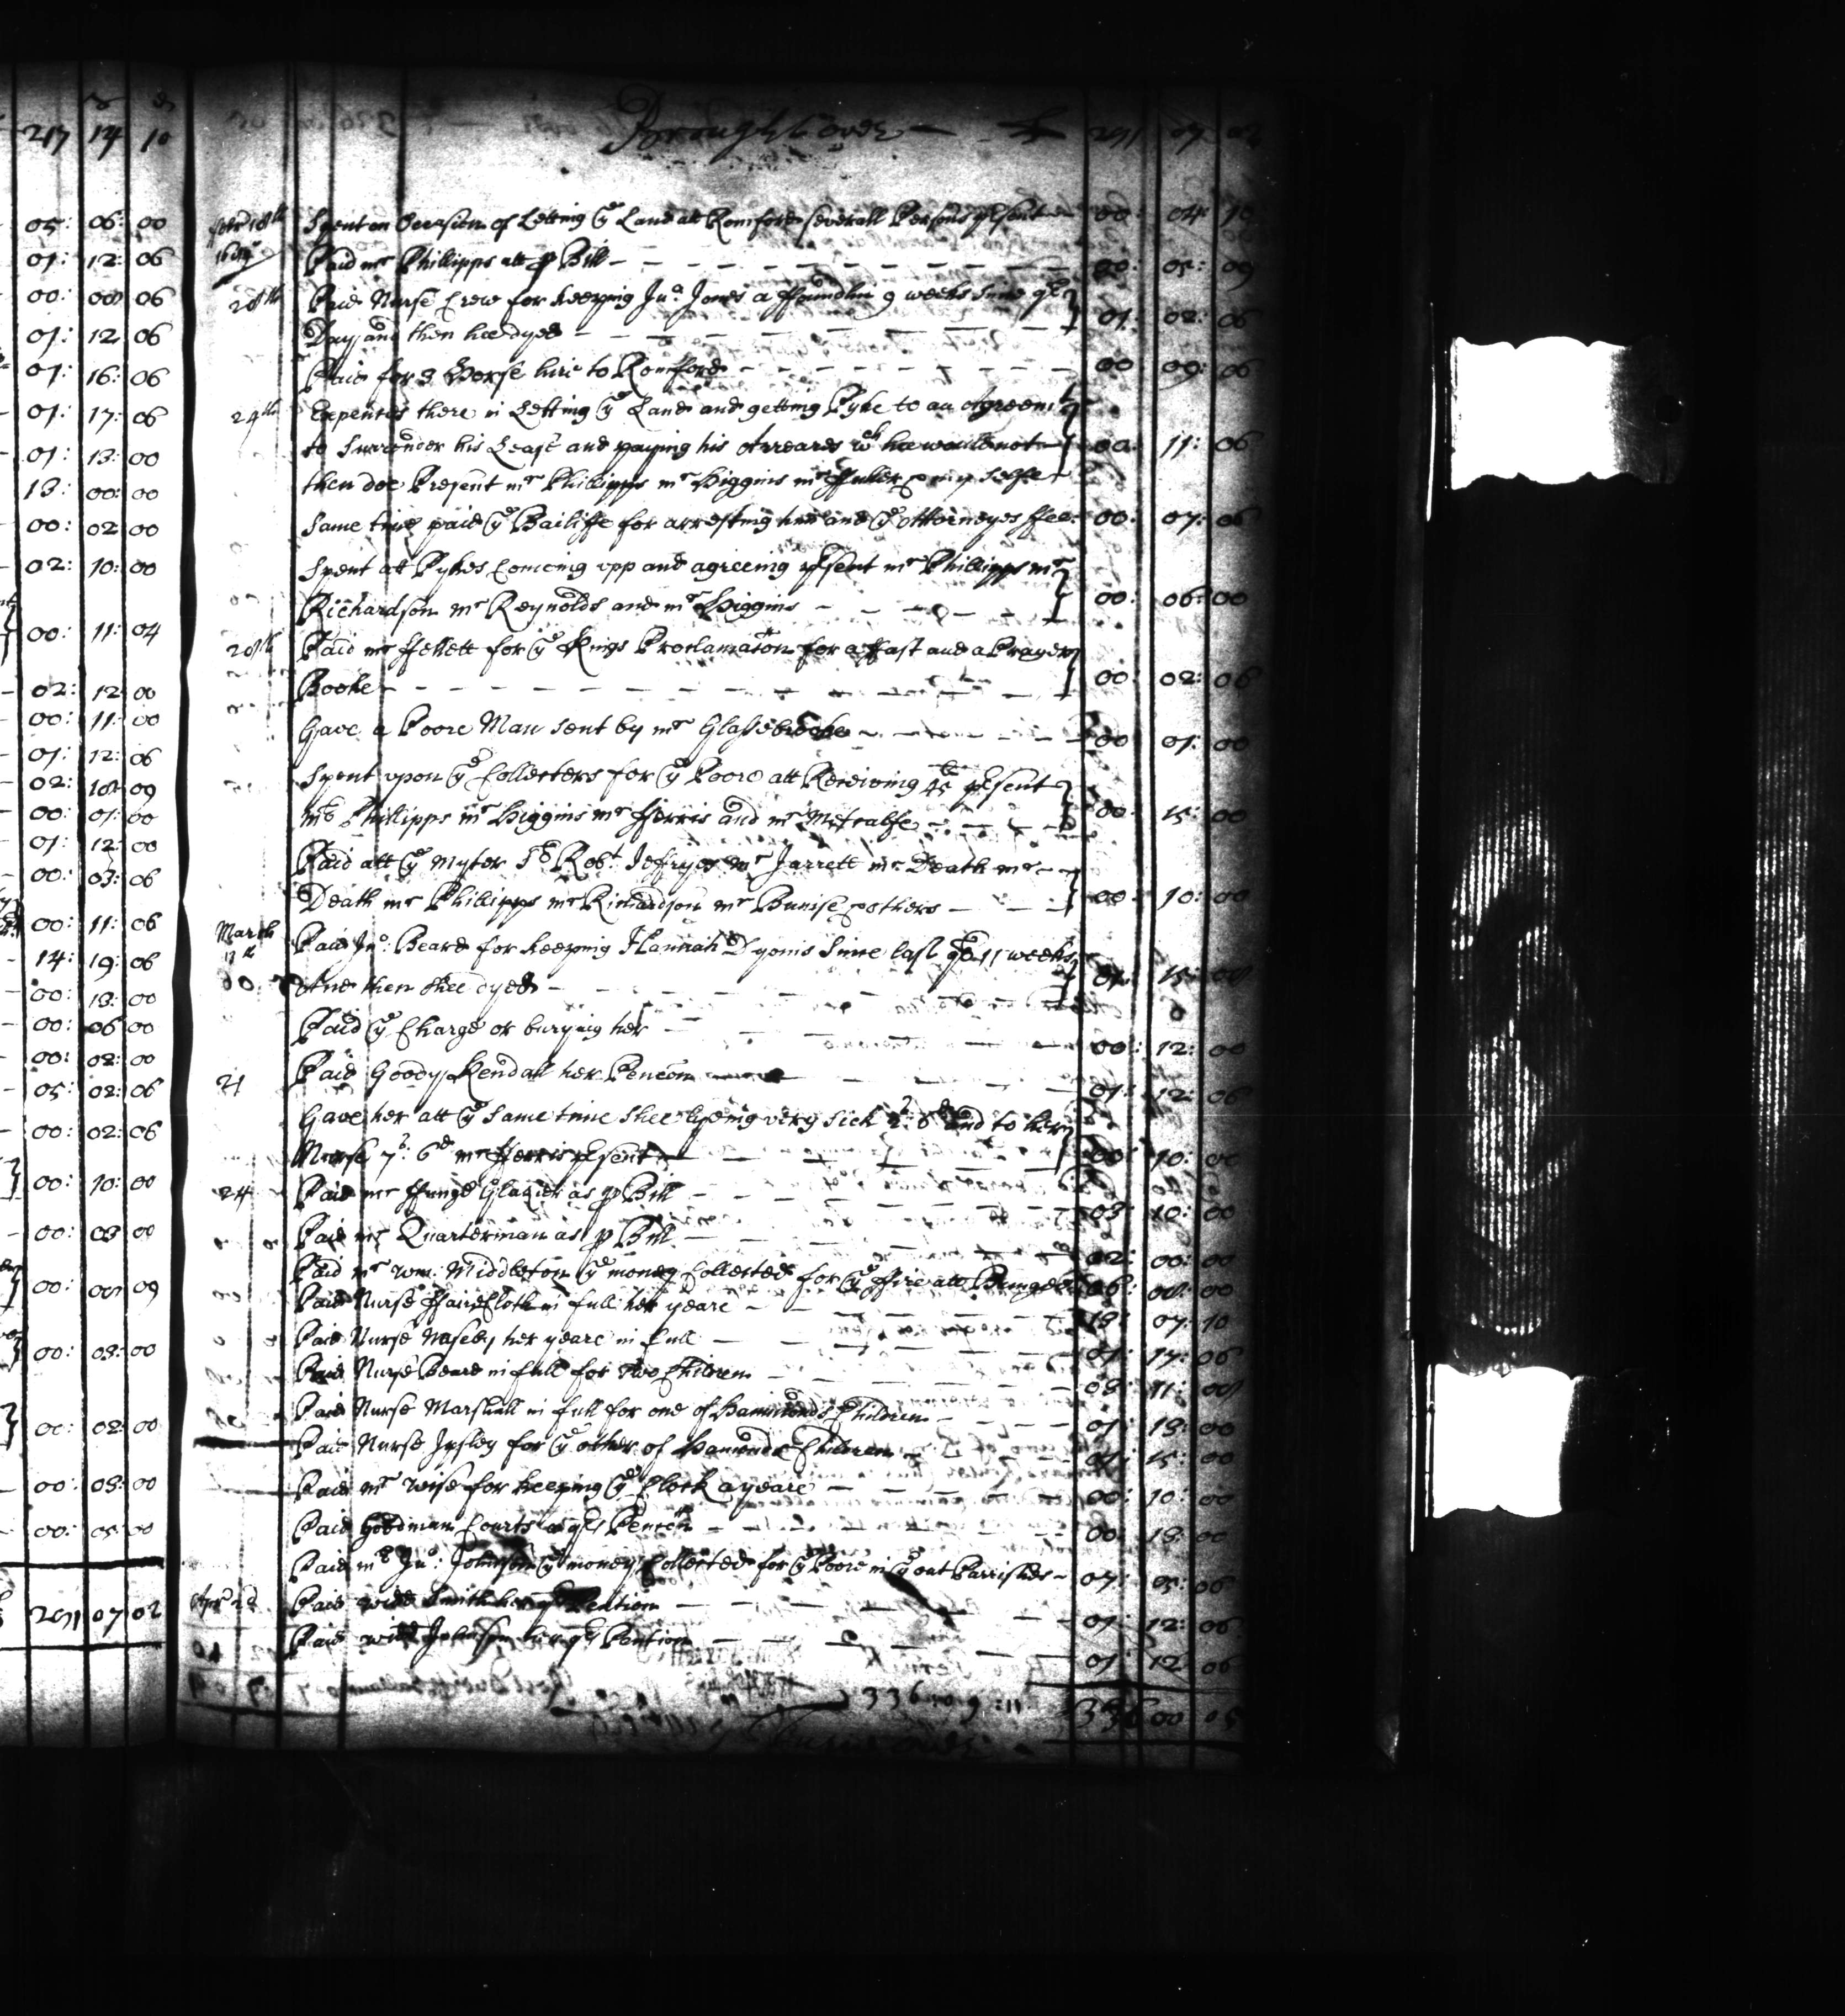 217 14 10
05: 06: 00
01: 12: 06
00: 00 06
01: 12 06
01: 16: 06
01: 17: 06
01: 13: 00
13: 00: 00
00: 02 00
02: 10: 00
00: 11: 04
02: 12 00
00: 11: 00
01: 12: 06
02: 10: 09
00: 01: 00
01: 12: 00
00: 03: 06
00: 11: 06
14: 19: 06
00: 18: 00
00: 06 00
00: 02: 00
05: 02: 06
00: 02: 06
00: 10: 00
00: 03 00
00: 00 09
00: 03: 00
00: 02: 00
00: 03: 00
00: 05: 00
291 07 02
Brought over — 291 07 02
Spent on Occasion of Letting ye Land att Romford severall Persons psent — 00: 04: 10
Paid mr Phillipps att p Bill — 00: 05: 09
28th Paid Nurse Crew for keeping Jno. Jones a ffoundlin 9 weeks since
Day and then hee dyed — 01: 02: 06
Paid for 3 Horse hire to Romford — 00 09: 06
24th Expences there in Letting ye Land and getting Pyke to an Agreemt
to Surrender his Lease and paying his Arreares wch hee would not — 00: 11: 06
then doe Present mr Phillipps mr Higgins mr ffuller & my selfe
Same time paid ye Bailiffe for arresting him and ye Attorneyes ffee 00: 07: 06
Spent att Pykes Comeing vpp and agreeing psent mr Phillipps mr
Richardson mr Reynolds and mr Higgins — 00: 06: 00
28th Paid mr ffellett for ye Kings Proclamaton for a ffast and a Prayer
Booke — 00: 02: 06
Gave a Poore Man sent by mr Glassbrooke — 00 01: 00
Spent vpon ye Collecters for ye Poore att Receiving psent
mr Phillipps mr Higgins mr fferris and mr Metcalfe — 00: 15: 00
Paid att ye Myter Sr Robt. Jefryes mr Jarrett mr Death mr
Death mr Phillipps mr Richardson mr Bunise & others — 00: 10: 00
March
17th Paid Jno: Beard for keeping Hannah Dyonis Since last 11 weeks
And then shee dyed — 01: 15: 00
Paid ye Charge or burying her — 00: 12: 00
21 Paid Goody Kendall her Pencon — 01: 12: 06
Gave her att ye same time shee lyeing very sick 2s: 6d and to her
Nurse 7s: 6d mr fferris psent — 00: 10: 00
24 Paid mr ffunge Glazier as p Bill — 03: 10: 00
Paid mr Quarterman as p Bill — 02: 00: 00
Paid mr Wm: Middleton ye money Collected for ye ffire att Bungey 06: 00: 00
Paid Nurse ffairecloth in full her yeare — 07: 10
Paid Nurse Naseby her yeare in full — 01: 17: 06
Paid Nurse Beard in full for two Children — 03: 11: 00
Paid Nurse Marshall in full for one of Hammonds Children — 01: 18: 00
Paid Nurse Insley for ye other of Hamonds Children — 01: 15: 00
Paid mr Wise for keeping ye Clock a yeare — 00: 10: 00
Paid Goodman Courts Pencon — 00: 18: 00
Paid mr Jno: Johnson ye money Collected for ye Poore in ye out Parrishes — 07: 05: 06
Paid widd Smith her Pention — 01: 12: 06
Paid widd Johnson her Pention — 01: 12 06
336: 09: 11
336 00 05